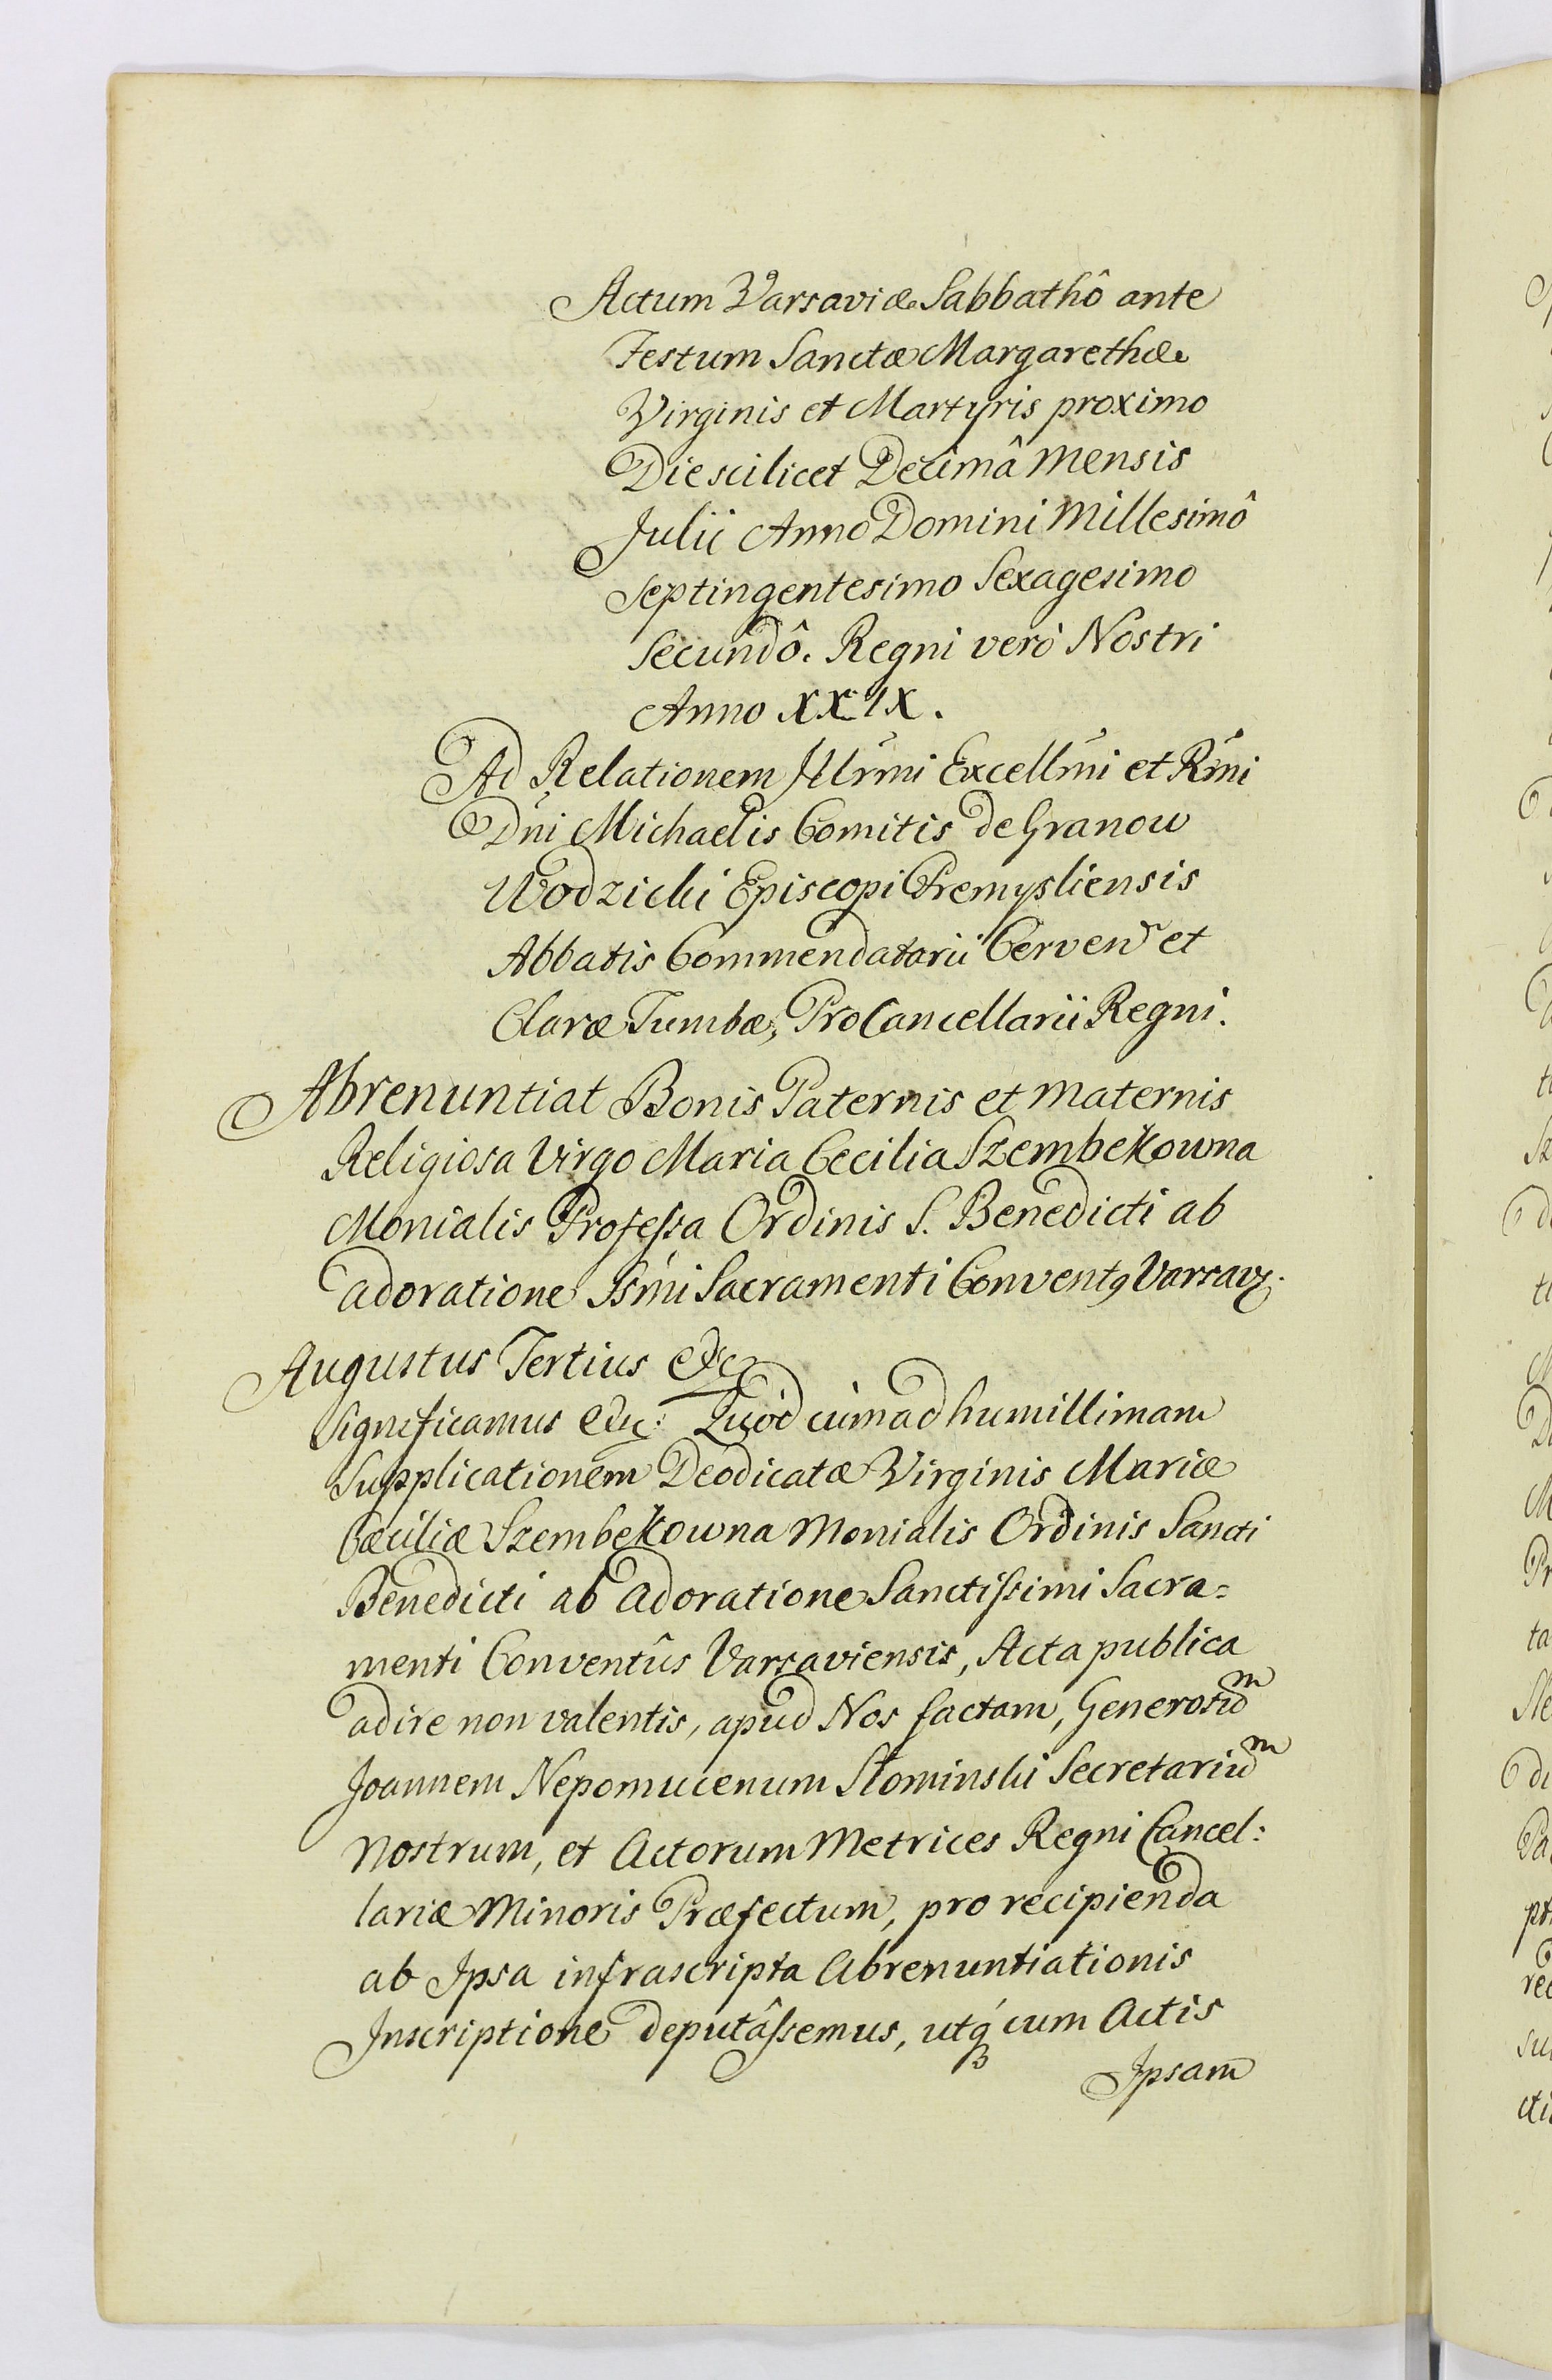 Actum Varsaviæ Sabbathô ante
Festum Sanctæ Margarethæ
Virginis et Martyris proximo
Die scilicet Decimâ Mensis
Julii Anno Domini Millesimô
Septingentesimo Sexagesimo
Secundô. Regni verò Nostri
Anno XXIX.
Ad Relationem Illrmi Excellmi et Rmi
Dni Michaelis Comitis de Granow
Wodzicki Episcopi Premysliensis
Abbatis Commendatarii Cerven et
Claræ Tumbæ, ProCancellarii Regni.
Abrenuntiat Bonis Paternis et Maternis
Religiosa Virgo Maria Cecilia Szembekowna
Monialis Professa Ordinis S. Benedicti ab
adoratione Ssmi Sacramenti Conventꝯ Varsav:
Augustus Tertius &c
Significamus &c: Quòd cùm ad humillimam
Supplicationem Deodicatæ Virginis Mariæ
Cæciliæ Szembekowna Monialis Ordinis Sancti
Benedicti ab adoratione Sanctissimi Sacra=
menti Conventûs Varsaviensis, Acta publica
adire non valentis, apud Nos factam, Generosum
Joannem Nepomucenum Słominski Secretarium
Nostrum, et Actorum Metrices Regni Cancel:
lariæ Minoris Præfectum, pro recipienda
ab Ipsa infrascripta Abrenuntiationis
Inscriptione deputâssemus, utq́ cum Actis
Ipsam